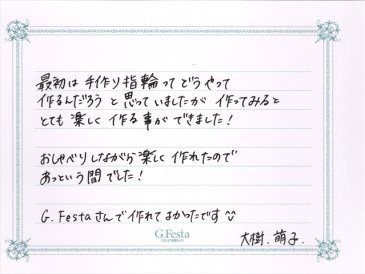 最初は手作り指輪ってどうやって
作るんだろうと思っていましたが作ってみると
とても楽しく作る事ができました!
おしゃべりしながら楽しく作れたので
あっという間でした!
G.Festaさんで作れてよかったです
G.Festa
大樹.萌子.